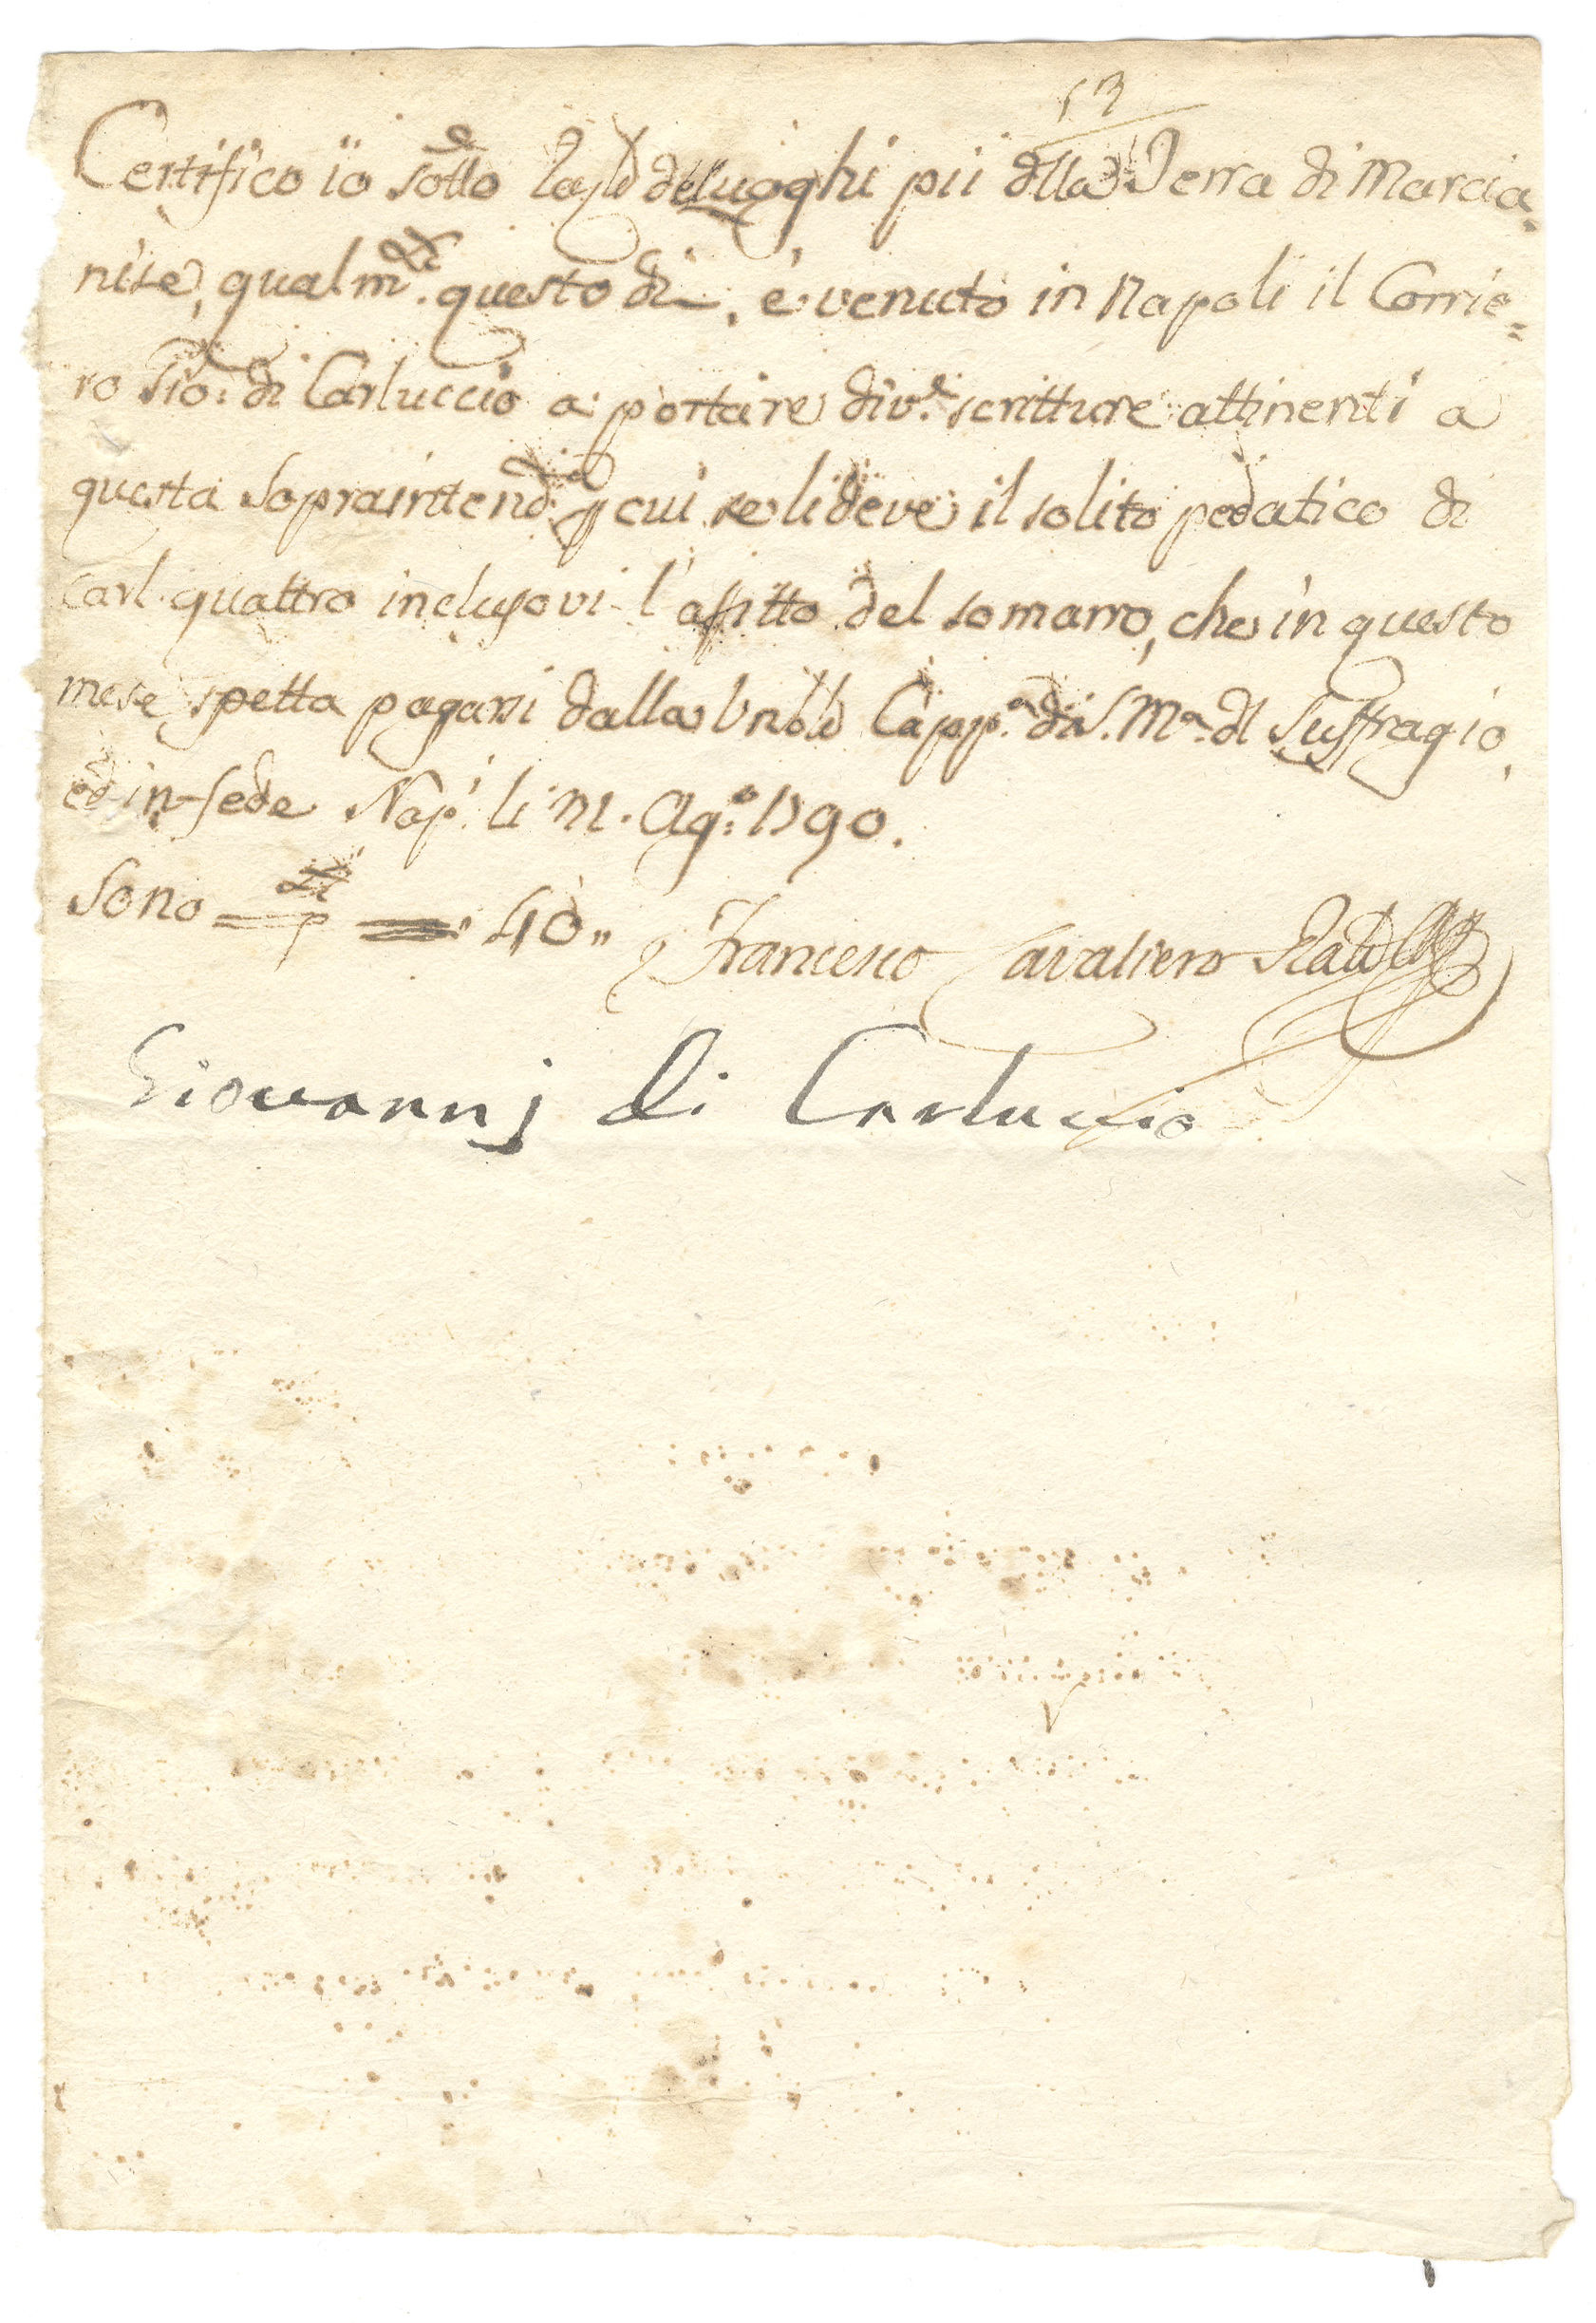 53
Certifico io sotto Raz.le de luoghi pii dlla Terra di Marcia=
nise, qualm.te questo di, è venuto in Napoli il Corrie=
ro Gio: di Carluccio a portare div.e scritture attinenti a
questa Sopraintend.a p cui se li deve il solito pedatico di
Carl. quattro inclusovi l'affitto del somarro, che in questo
mese spetta pagarsi dalla Vn.le Capp.a di S. M.a dl Suffragio,
ed in fede Nap.i li Ag.o 1790.
Sono 40"
Francesco Cavaliero
Giovannj di Carluccio